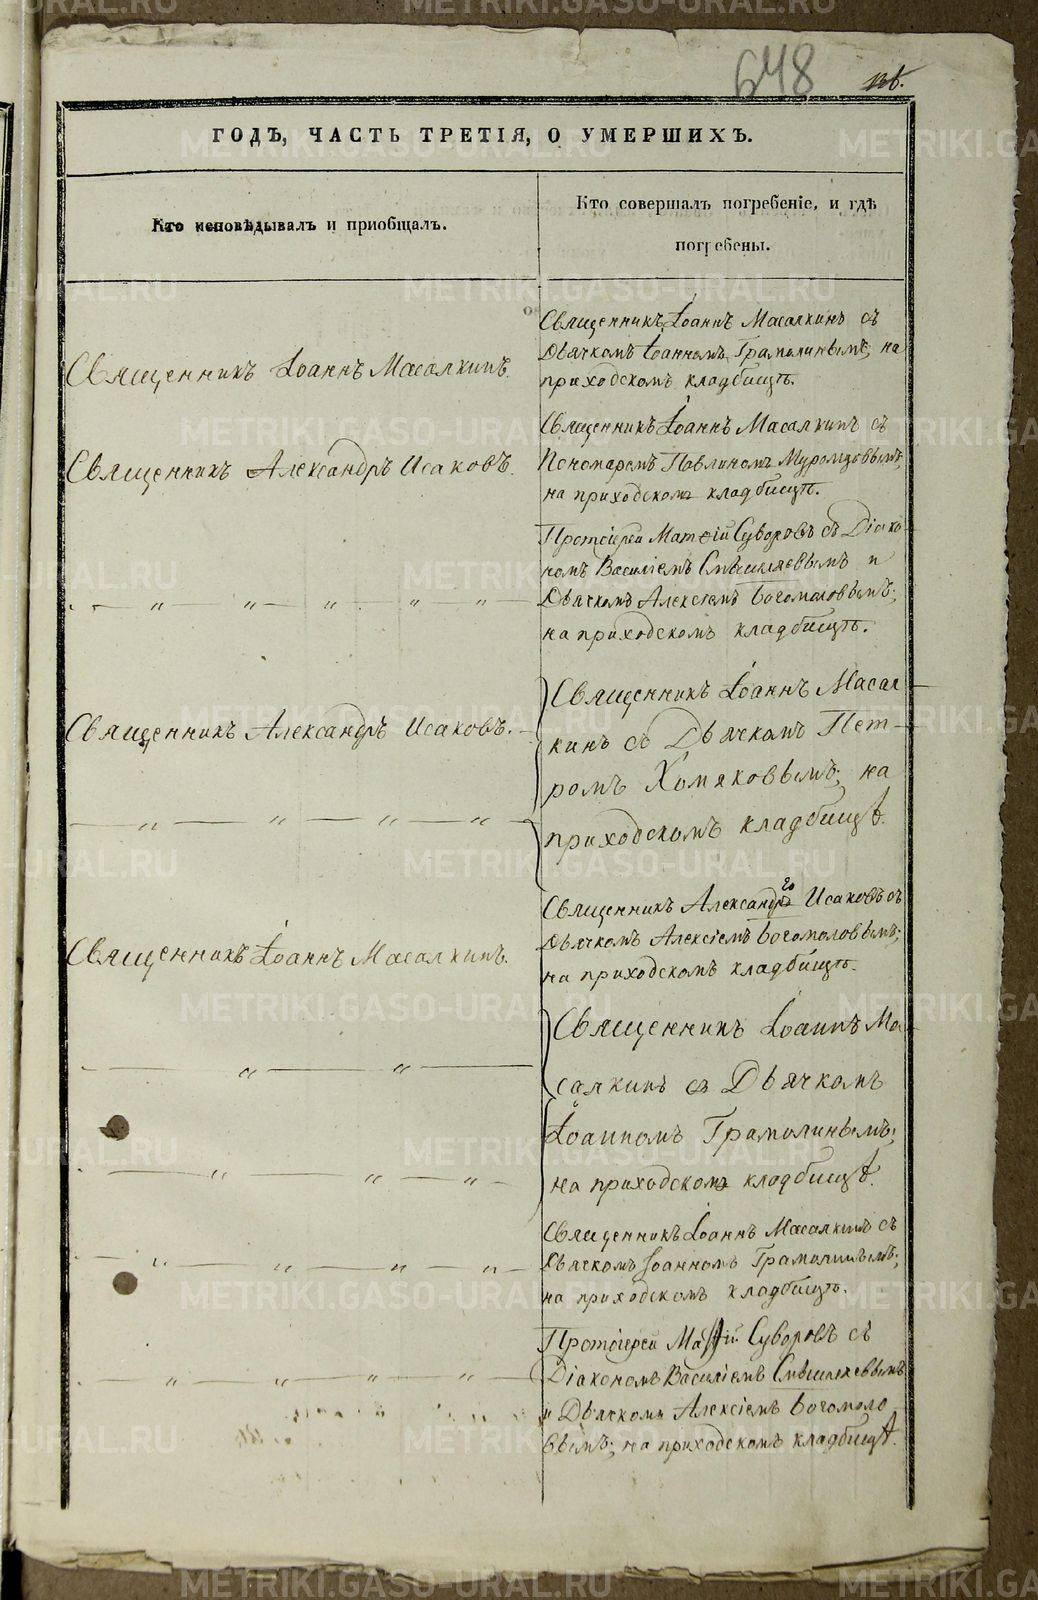 648
ГОДЪ, ЧАСТЬ ТРЕТІЯ, О УМЕРШИХЪ.
Кто исповѣдывалъ и приобщалъ.
Кто совершалъ погребеніе, и гдѣ
погребены.
Священникъ Іоаннъ Масалкинъ.
Священникъ Іоаннъ Масалкинъ съ
Дьячкомъ Іоанномъ Грамолинымъ, на
приходскомъ кладбищѣ.
Священникъ Александръ Исаковъ.
Священникъ Іоаннъ Масалкинъ съ
Пономаремъ Павлиномъ Муромцовымъ,
на приходскомъ кладбищѣ.
— „ — „ — „ — „ — „ —
Протоіерей Матѳій Суворовъ съ Діако-
номъ Василіемъ Смышляевымъ и
Дьячкомъ Алексіемъ Богомоловымъ;
на приходскомъ кладбищѣ.
Священникъ Александръ Исаковъ. —
— „ — „ — „ — „ —
Священникъ Іоаннъ Масал-
кинъ съ Дьячкомъ Пет-
ромъ Хомяковымъ; на
приходскомъ кладбищѣ.
Священникъ Іоаннъ Масалкинъ.
Священникъ Александръ Исаковъ съ
Дьячкомъ Алексіемъ Богомоловымъ;
на приходскомъ кладбищѣ.
— „ — „ —
— „ — „ — „ —
Священникъ Іоаннъ Ма-
салкинъ съ Дьячкомъ
Іоанномъ Грамолинымъ;
на приходскомъ кладбищѣ.
— „ — „ — „ — „ —
Священникъ Іоаннъ Масалкинъ съ
Дьячкомъ Іоанномъ Грамолинымъ;
на приходскомъ кладбищѣ.
— „ — „ — „ — „ —
Протоіерей Матѳій Суворовъ съ
Діакономъ Василіемъ Смышляевымъ
и Дьячкомъ Алексіемъ Богомоло
вымъ; на приходскомъ кладбищѣ.
METRIKI.GASO-URAL.RU